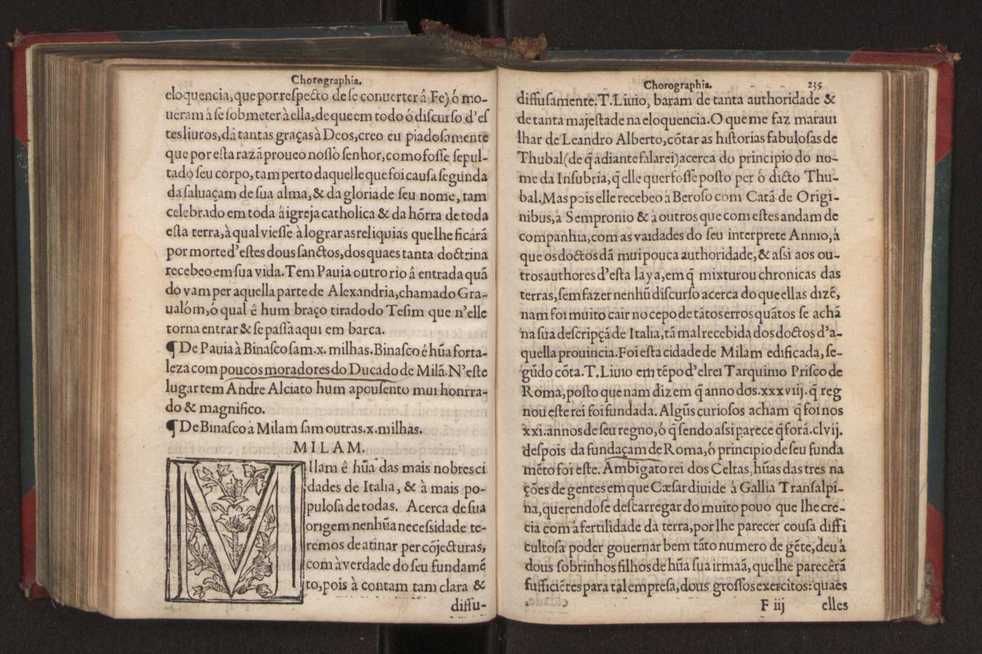 Chorographia.
eloquencia, que por respecto de se conuerter â Fe) ó mo-
ueram à se sobmeter à ella, de que em todo ó discurso d'es
tes liuros, dâ tantas graças à Deos, creo eu piadosamente
que por esta razã proueo nosso senhor, como fosse sepul-
tado seu corpo, tam perto daquelle que foi causa segunda
da saluaçam de sua alma, & da gloria de seu nome, tam
celebrado em toda â igreja catholica & da hõrra de toda
esta terra, à qual viesse à lograr as reliquias que lhe ficarã
por morte d'estes dous sanctos, dos quaes tanta doctrina
recebeo em sua vida. Tem Pauia outro rio â entrada quã
do vam per aquella parte de Alexandria, chamado Gra-
ualóm, ó qual ê hum braço tirado do Tesim que n'elle
torna entrar & se passa aqui em barca.
¶ De Pauia à Binasco sam .x. milhas. Binasco ê hũa forta-
leza com poucos moradores do Ducado de Milã. N'este
lugar tem Andre Alciato hum apousento mui honrra-
do & magnifico.
¶ De Binasco à Milam sam outras .x. milhas.
MILAM.
Millam ê hũa das mais nobres ci
dades de Italia, & à mais po-
pulosa de todas. Acerca de sua
origem nenhũa necessidade te-
remos de atinar per cõjecturas,
com à verdade do seu fundamẽ
to, pois à contam tam clara &
diffu-
Chorographia. 235
diffusamente. T. Liuio, baram de tanta authoridade &
de tanta majestade na eloquencia. O que me faz maraui
lhar de Leandro Alberto, cõtar as historias fabulosas de
Thubal (de q̃ adiante falarei) acerca do principio do no-
me da Insubria, q̃ elle quer fosse posto per ó dicto Thu-
bal. Mas pois elle recebeo à Beroso com Catã de Origi-
nibus, à Sempronio & à outros que com estes andam de
companhia, com as vaidades do seu interprete Annio, à
que os doctos dã mui pouca authoridade, & assi aos ou-
tros authores d'esta laya, em q̃ mixturou chronicas das
terras, sem fazer nenhũ discurso acerca do que ellas dizẽ,
nam foi muito cair no cepo de tãtos erros quãtos se achã
na sua descripçã de Italia, tã mal recebida dos doctos d'a-
quella prouincia. Foi esta cidade de Milam edificada, se-
gũdo cõta. T. Liuio em tẽpo d'elrei Tarquinio Prisco de
Roma, posto que nam diz em q̃ anno dos .xxxviij. q̃ reg
nou este rei foi fundada. Algũs curiosos acham q̃ foi nos
xxi. annos de seu regno, ó q̃ sendo assi parece q̃ forã .clvij.
despois da fundaçam de Roma, ó principio de seu funda
mẽto foi este. Ambigato rei dos Celtas, hũas das tres na
ções de gentes em que Cæsar diuide à Gallia Transalpi-
na, querendose descarregar do muito pouo que lhe cre-
cia com â fertilidade da terra, por lhe parecer cousa diffi
cultosa poder gouernar bem tãto numero de gẽte, deu à
dous sobrinhos filhos de hũa sua irmaã, que lhe parecerã
sufficiẽtes para tal empresa, dous grossos exercitos: quaes
F iij elles